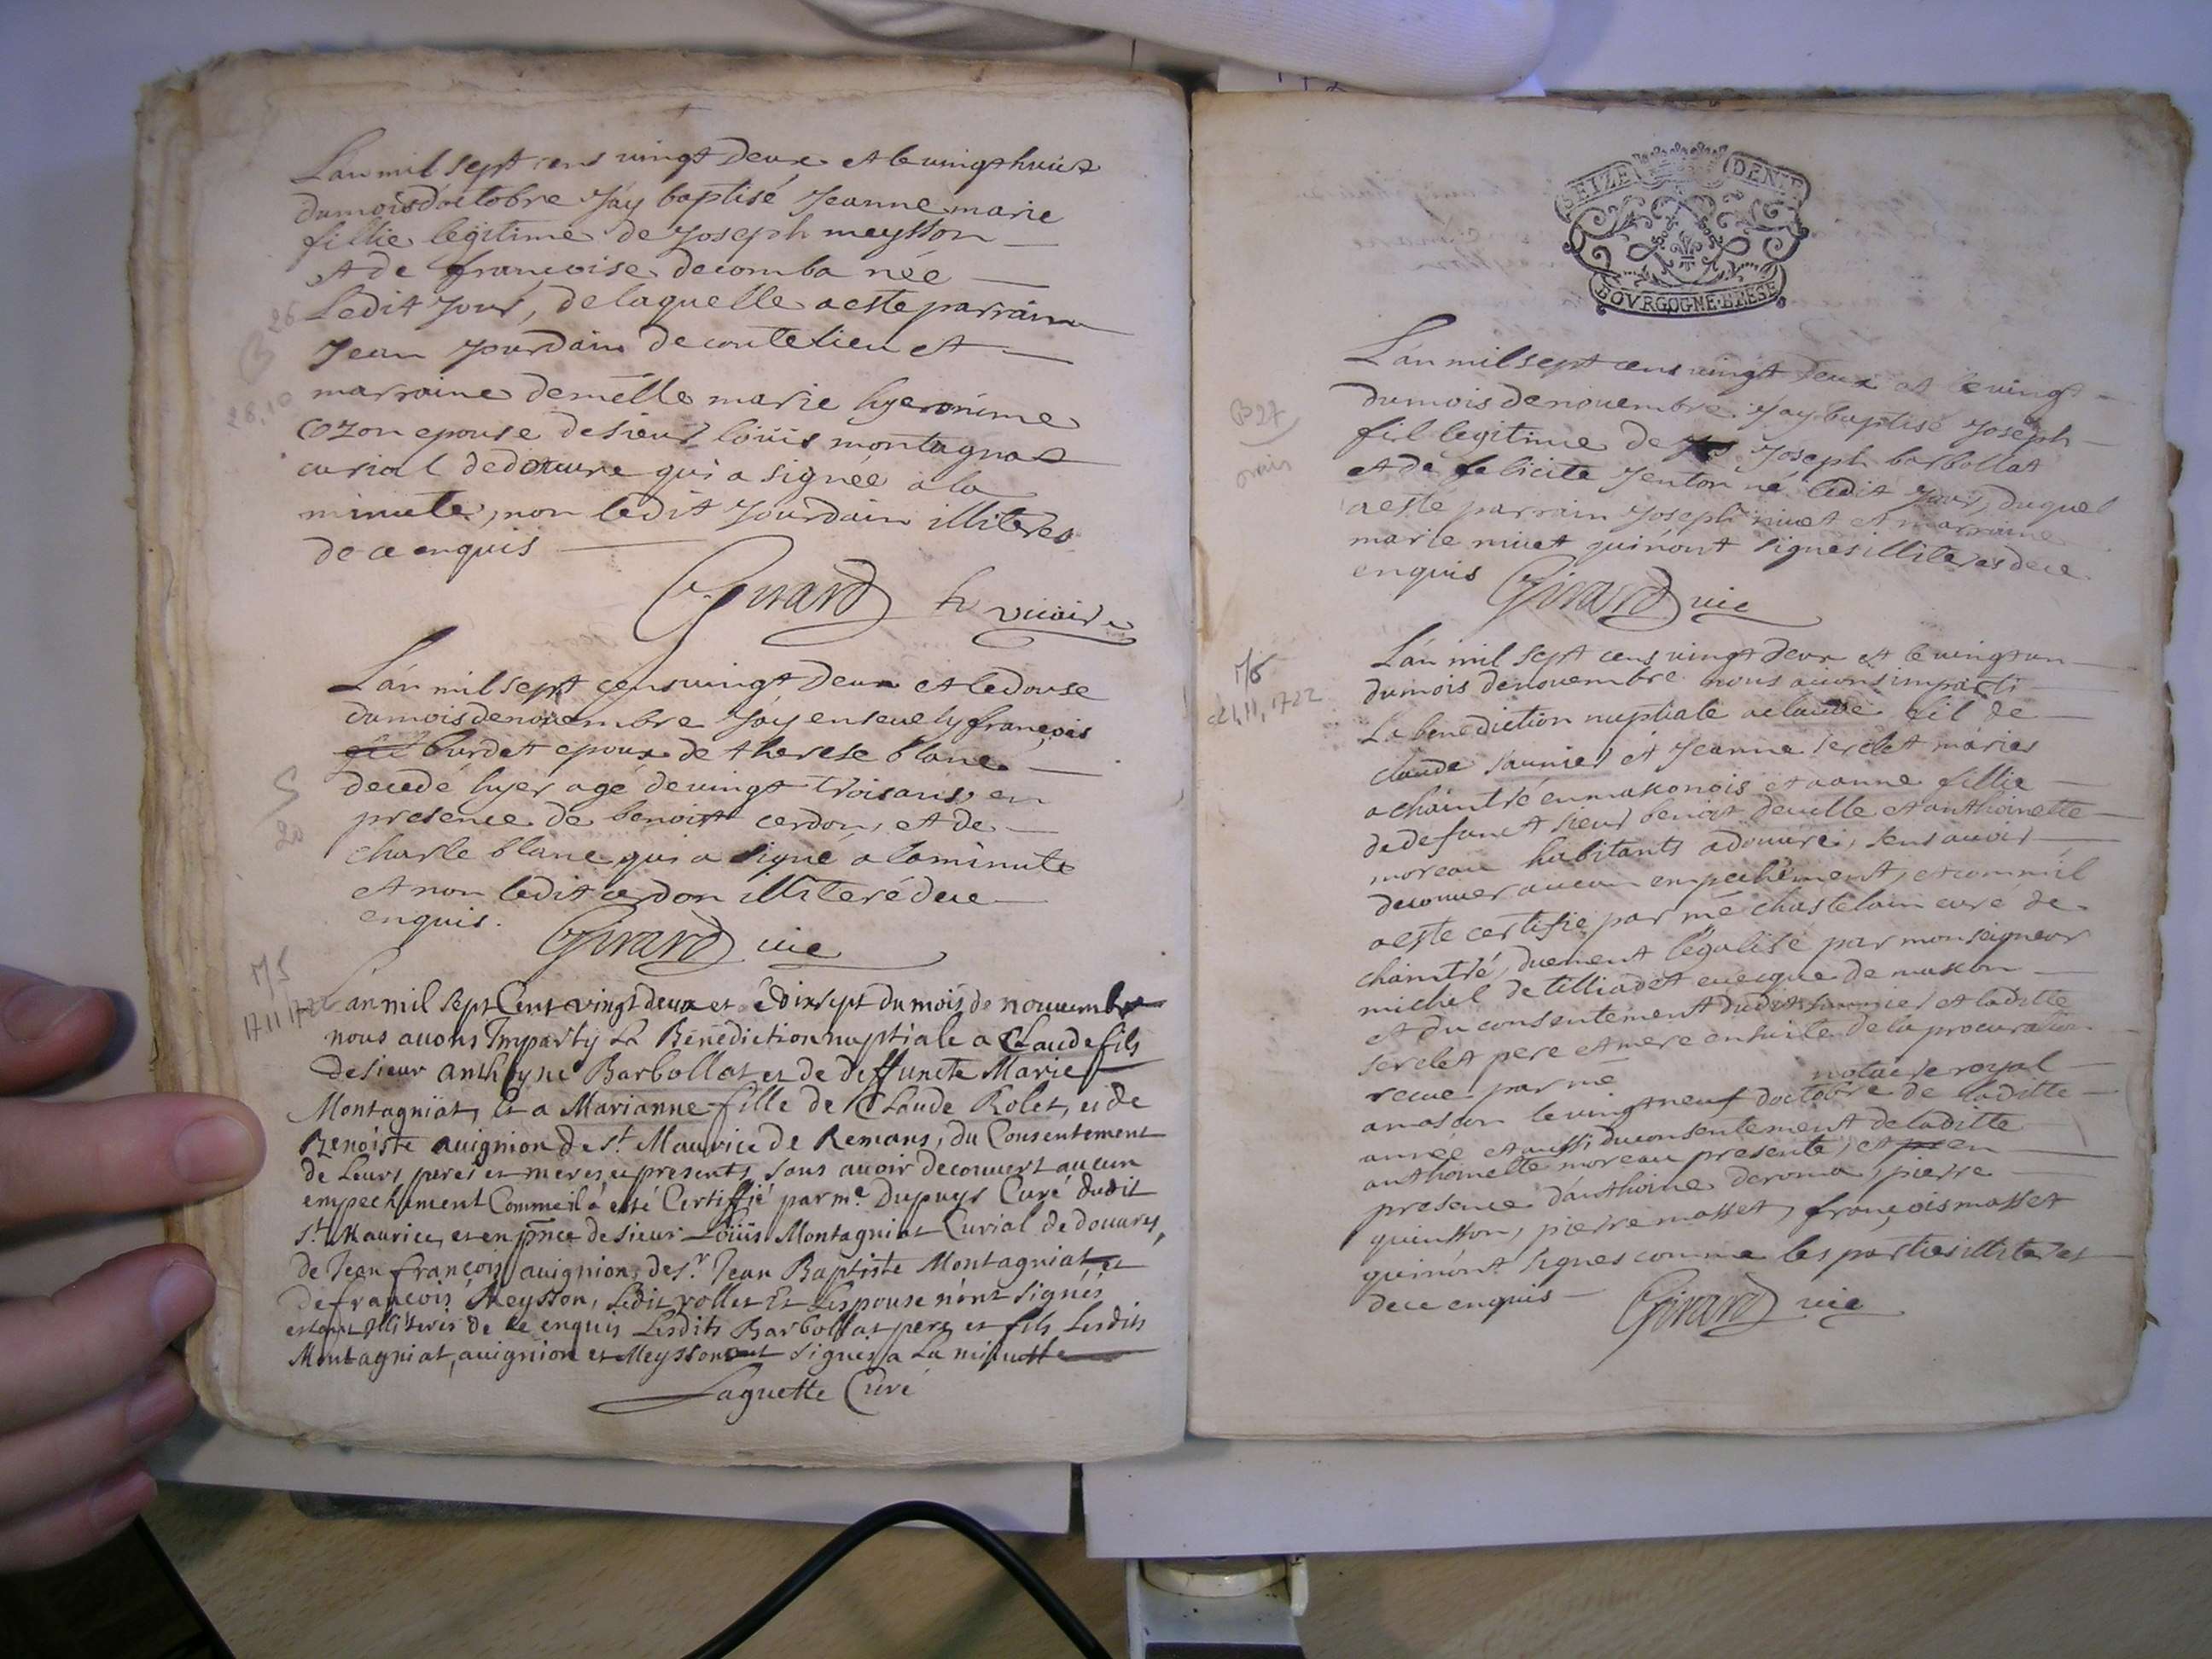 L'an mil sept cens vingt deux et le vingt huict
du mois d'octobre j'ay baptisé Jeanne marie
fillie legitime de Joseph meysson
et de françoise decomba née
ledit jour, de laquelle a esté parrain
Jean Jourdain de conte lieu et
marraine demelle marie hyeronime
cozon epouse de sieur loüis montagnat
curial de douure qui a signée a la
minute, non ledit Jourdain illiteré
de ce enquis
Girard vicaire
B 26
28.10
L'an mil sept cens vingt deux et le douse
du mois de novembre j'ay enseuely françois
burdet epoux de therese blanc
decedé hyer agé de vingt trois ans, en
presence de benoist cerdon, et de
charle blanc qui a signé a la minute
et non ledit cerdon illiteré de ce
enquis.
Girard vic
S
20
M5
17 11 1722
L'an mil sept Cent vingt deux et le dixsept du mois de nouuembre
nous auons Imparty La Bénédiction nuptiale a Claude fils
de sieur anthoyne Barbollat et de deffuncte Marie
Montagniat, Et a Marianne fille de Claude Rolet, et de
Benoiste auignion de St. Maurice de Remans, du Consentement
de Leurs peres et meres icy presents, sans auoir decouuert aucun
empechement Comme il a esté Certiffié par me. Dupuys Curé dudit
St. Maurice, et en pnce de sieur Loüis Montagniat Curial de douures,
de Jean françois auignion, de sr. Jean Baptiste Montagniat et
de françois Meysson, Ledit rollet Et Lespouse n'ont signés
estant illiteres de ce enquis Lesdits Barbollat pere et fils Lesdits
Montagniat, auignion et Meysson ont signes a La minutte
Laguette Curé
SEIZE DENIE
BOVRGOGNE BRESE
L'an mil sept cens vingt deux et le vingt
du mois de nouembre j'ay baptisé Joseph
fil legitime de Joseph barbollat
et de felicite Jenton né ledit jour, duquel
a esté parrain Joseph niuet et marraine
marie niuet qui n'ont signes illiteres de ce
enquis Girard vic
B 27
M6
21, 11, 1722
L'an mil sept cens vingt deux et le vingt un
du mois de nouembre nous auons imparti
La benediction nuptiale a claude fil de
claude saunier et Jeanne serclet maries
a chaintré en makonois et a anne fillie
de defunct sieur benoist deuille et anthoinette
moreau habitants a douure, sens auoir
decouuer aucun empechement, et comme il
a esté certifie par me chastelain curé de
chaintré, duement legalisé par monseigneur
michel de tilliadet euecque de makon
et du consentement dudit saunier et laditte
serclet pere et mere ensuite de la procuration
recue par me notaire royal
a mascon le vingt neuf d'octobre de laditte
année et aussi du consentement de laditte
anthoinette moreau presente, et en
presence d'anthoine deroma, pierre
quinsson, pierre masset, françois masset
qui n'ont signes comme les parties illiteres
de ce enquis
Girard vic